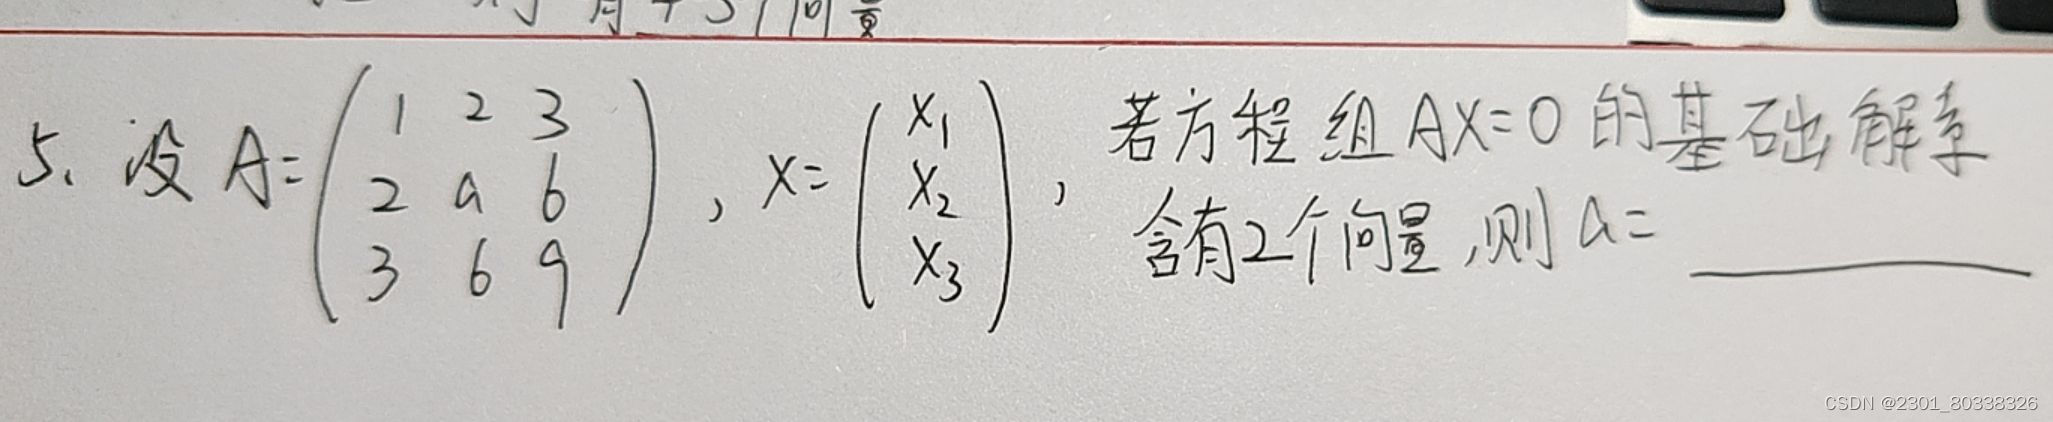 有 个向量
5、设 A=(1 2 3
2 a 6
3 6 9), X=(x1
x2
x3), 若方程组AX=0的基础解系
含有2个向量,则a=
CSDN @2301_80338326